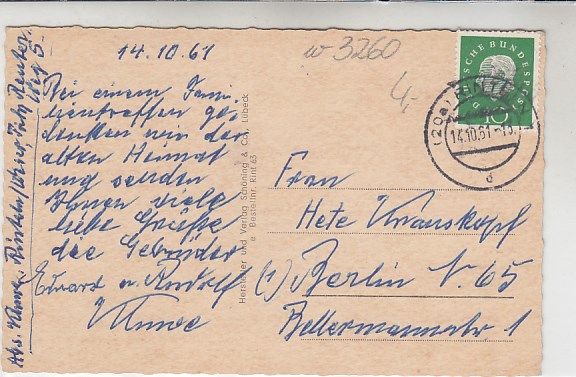 14.10.61
Bei einem Fami-
lientreffen ge-
denken wir der
alten Heimat
und senden
Ihnen viele
liebe Grüße
die Gebrüder
Eduard u. Rudolf
Abs. Rinteln/Weser, Fritz Reuter
Weg 5
Hersteller und Verlag Schöning & Co., Lübeck
Bestellnr. Rint 63
w 3260
4,-
DEUTSCHE BUNDESPOST
10
(20a)
14.10.61
d
Frau
Hete Krauskopf
(1) Berlin N. 65
Bellermannstr. 1